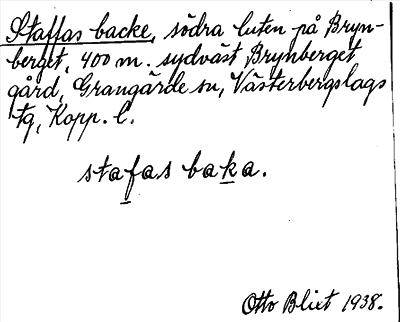 Staffas backe, södra luten på Bryn-
berget, 400 m. sydväst Brynberget
gård, Grangärde sn, Västerbergslags
tg, Kopp. l.
stafas baka.
Otto Blixt 1938.